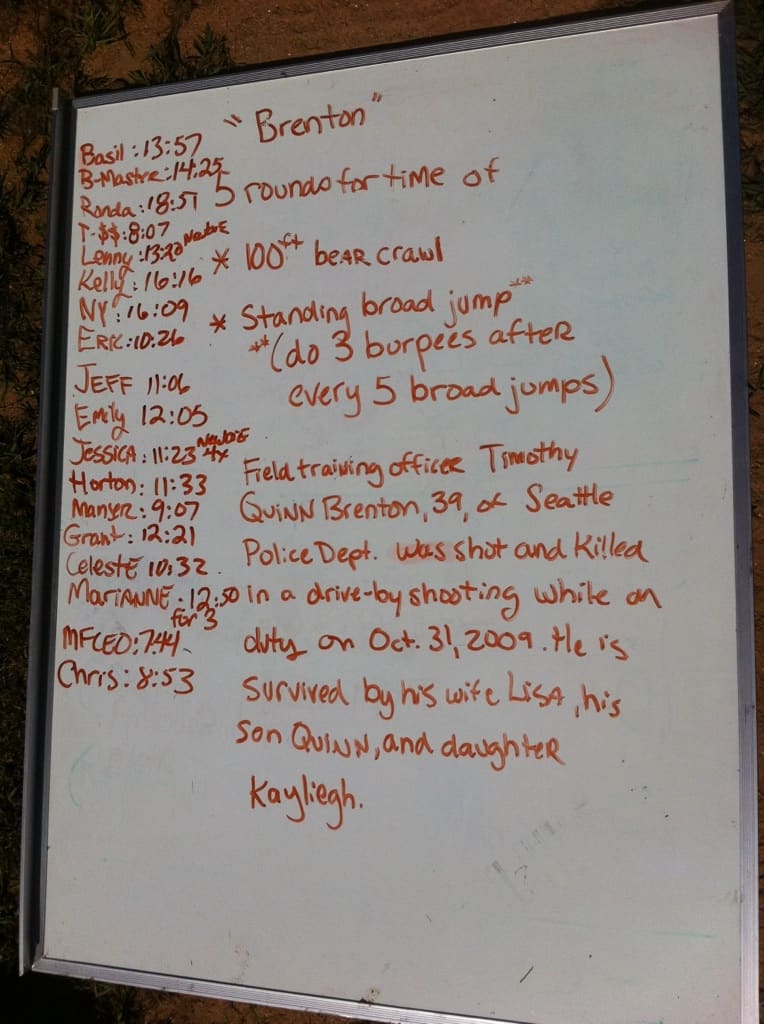 "Brenton"
Basil: 13:57
B-Mastre: 14:25
Ronda: 18:51
T-$$: 8:07
Lenny: 13:20 Newbie
Kelly: 16:16
NY: 16:09
Eric: 10:26
JEFF 11:06
Emily 12:05
JESSICA: 11:23 Newbie 4x
Horton: 11:33
Manyer: 9:07
Grant: 12:21
CelestE 10:32
MariANNE. 12:50
for 3
MFCEO: 7:44
Chris: 8:53
5 rounds for time of
* 100ft bear crawl
* Standing broad jump**
**(do 3 burpees after
every 5 broad jumps)
Field training officer Timothy
Quinn Brenton, 39, of Seattle
Police Dept. was shot and killed
in a drive-by shooting while on
duty on Oct. 31, 2009. He is
survived by his wife Lisa, his
son Quinn, and daughter
Kayliegh.